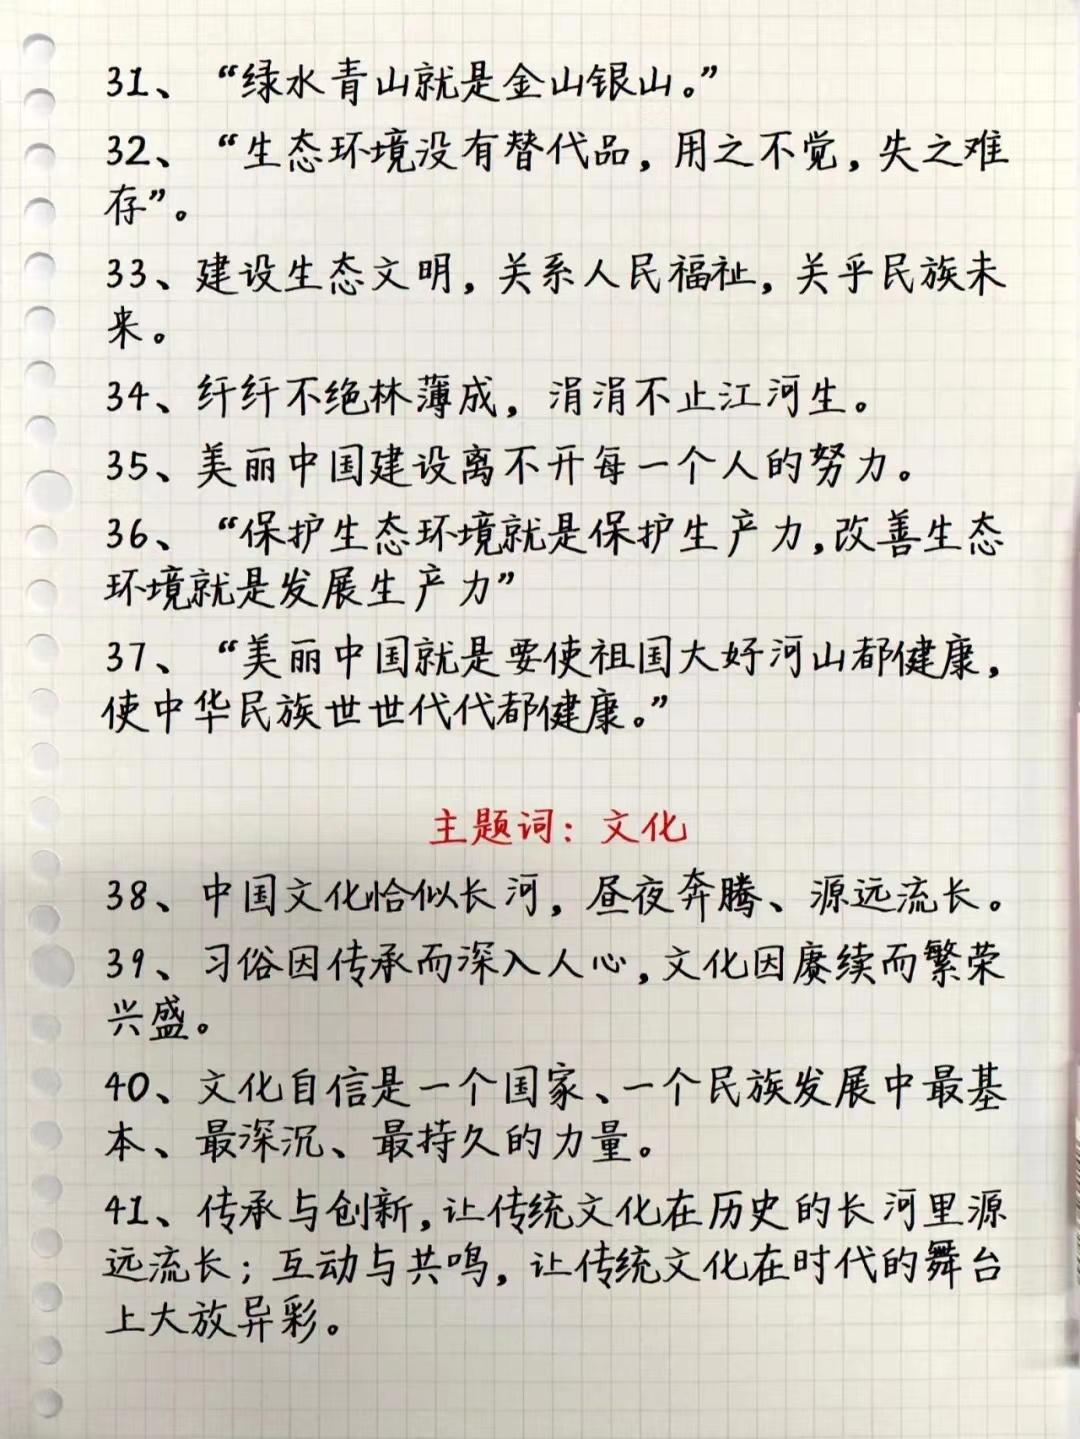 31、“绿水青山就是金山银山。”
32、“生态环境没有替代品，用之不觉，失之难
存”。
33、建设生态文明，关系人民福祉，关乎民族未
来。
34、纤纤不绝林薄成，涓涓不止江河生。
35、美丽中国建设离不开每一个人的努力。
36、“保护生态环境就是保护生产力，改善生态
环境就是发展生产力”
37、“美丽中国就是要使祖国大好河山都健康，
使中华民族世世代代都健康。”
主题词：文化
38、中国文化恰似长河，昼夜奔腾、源远流长。
39、习俗因传承而深入人心，文化因赓续而繁荣
兴盛。
40、文化自信是一个国家、一个民族发展中最基
本、最深沉、最持久的力量。
41、传承与创新，让传统文化在历史的长河里源
远流长；互动与共鸣，让传统文化在时代的舞台
上大放异彩。